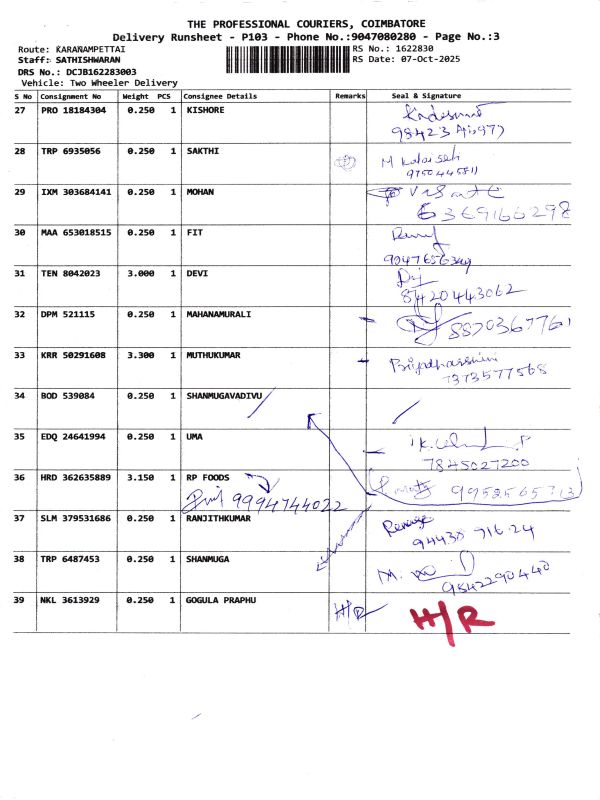 THE PROFESSIONAL COURIERS, COIMBATORE
Delivery Runsheet - P103 - Phone No.:9047080280 - Page No.:3
Route: KARANAMPETTAI RS No.: 1622830
Staff: SATHISHWARAN RS Date: 07-Oct-2025
DRS No.: DCJB162283003
Vehicle: Two Wheeler Delivery
S No Consignment No Weight PCS Consignee Details Remarks Seal & Signature
27 PRO 18184304 0.250 1 KISHORE
28 TRP 6935056 0.250 1 SAKTHI
9750445811
29 IXM 303684141 0.250 1 MOHAN
6369166298
30 MAA 653018515 0.250 1 FIT
31 TEN 8042023 3.000 1 DEVI
8420443062
32 DPM 521115 0.250 1 MAHANAMURALI
8870367761
33 KRR 50291608 3.300 1 MUTHUKUMAR
7373577568
34 BOD 539084 0.250 1 SHANMUGAVADIVU
35 EDQ 24641994 0.250 1 UMA
7845027200
36 HRD 362635889 3.150 1 RP FOODS
9994744022 9952565713
37 SLM 379531686 0.250 1 RANJITHKUMAR
94438 916 24
38 TRP 6487453 0.250 1 SHANMUGA
9842290440
39 NKL 3613929 0.250 1 GOGULA PRAPHU H/R H/R